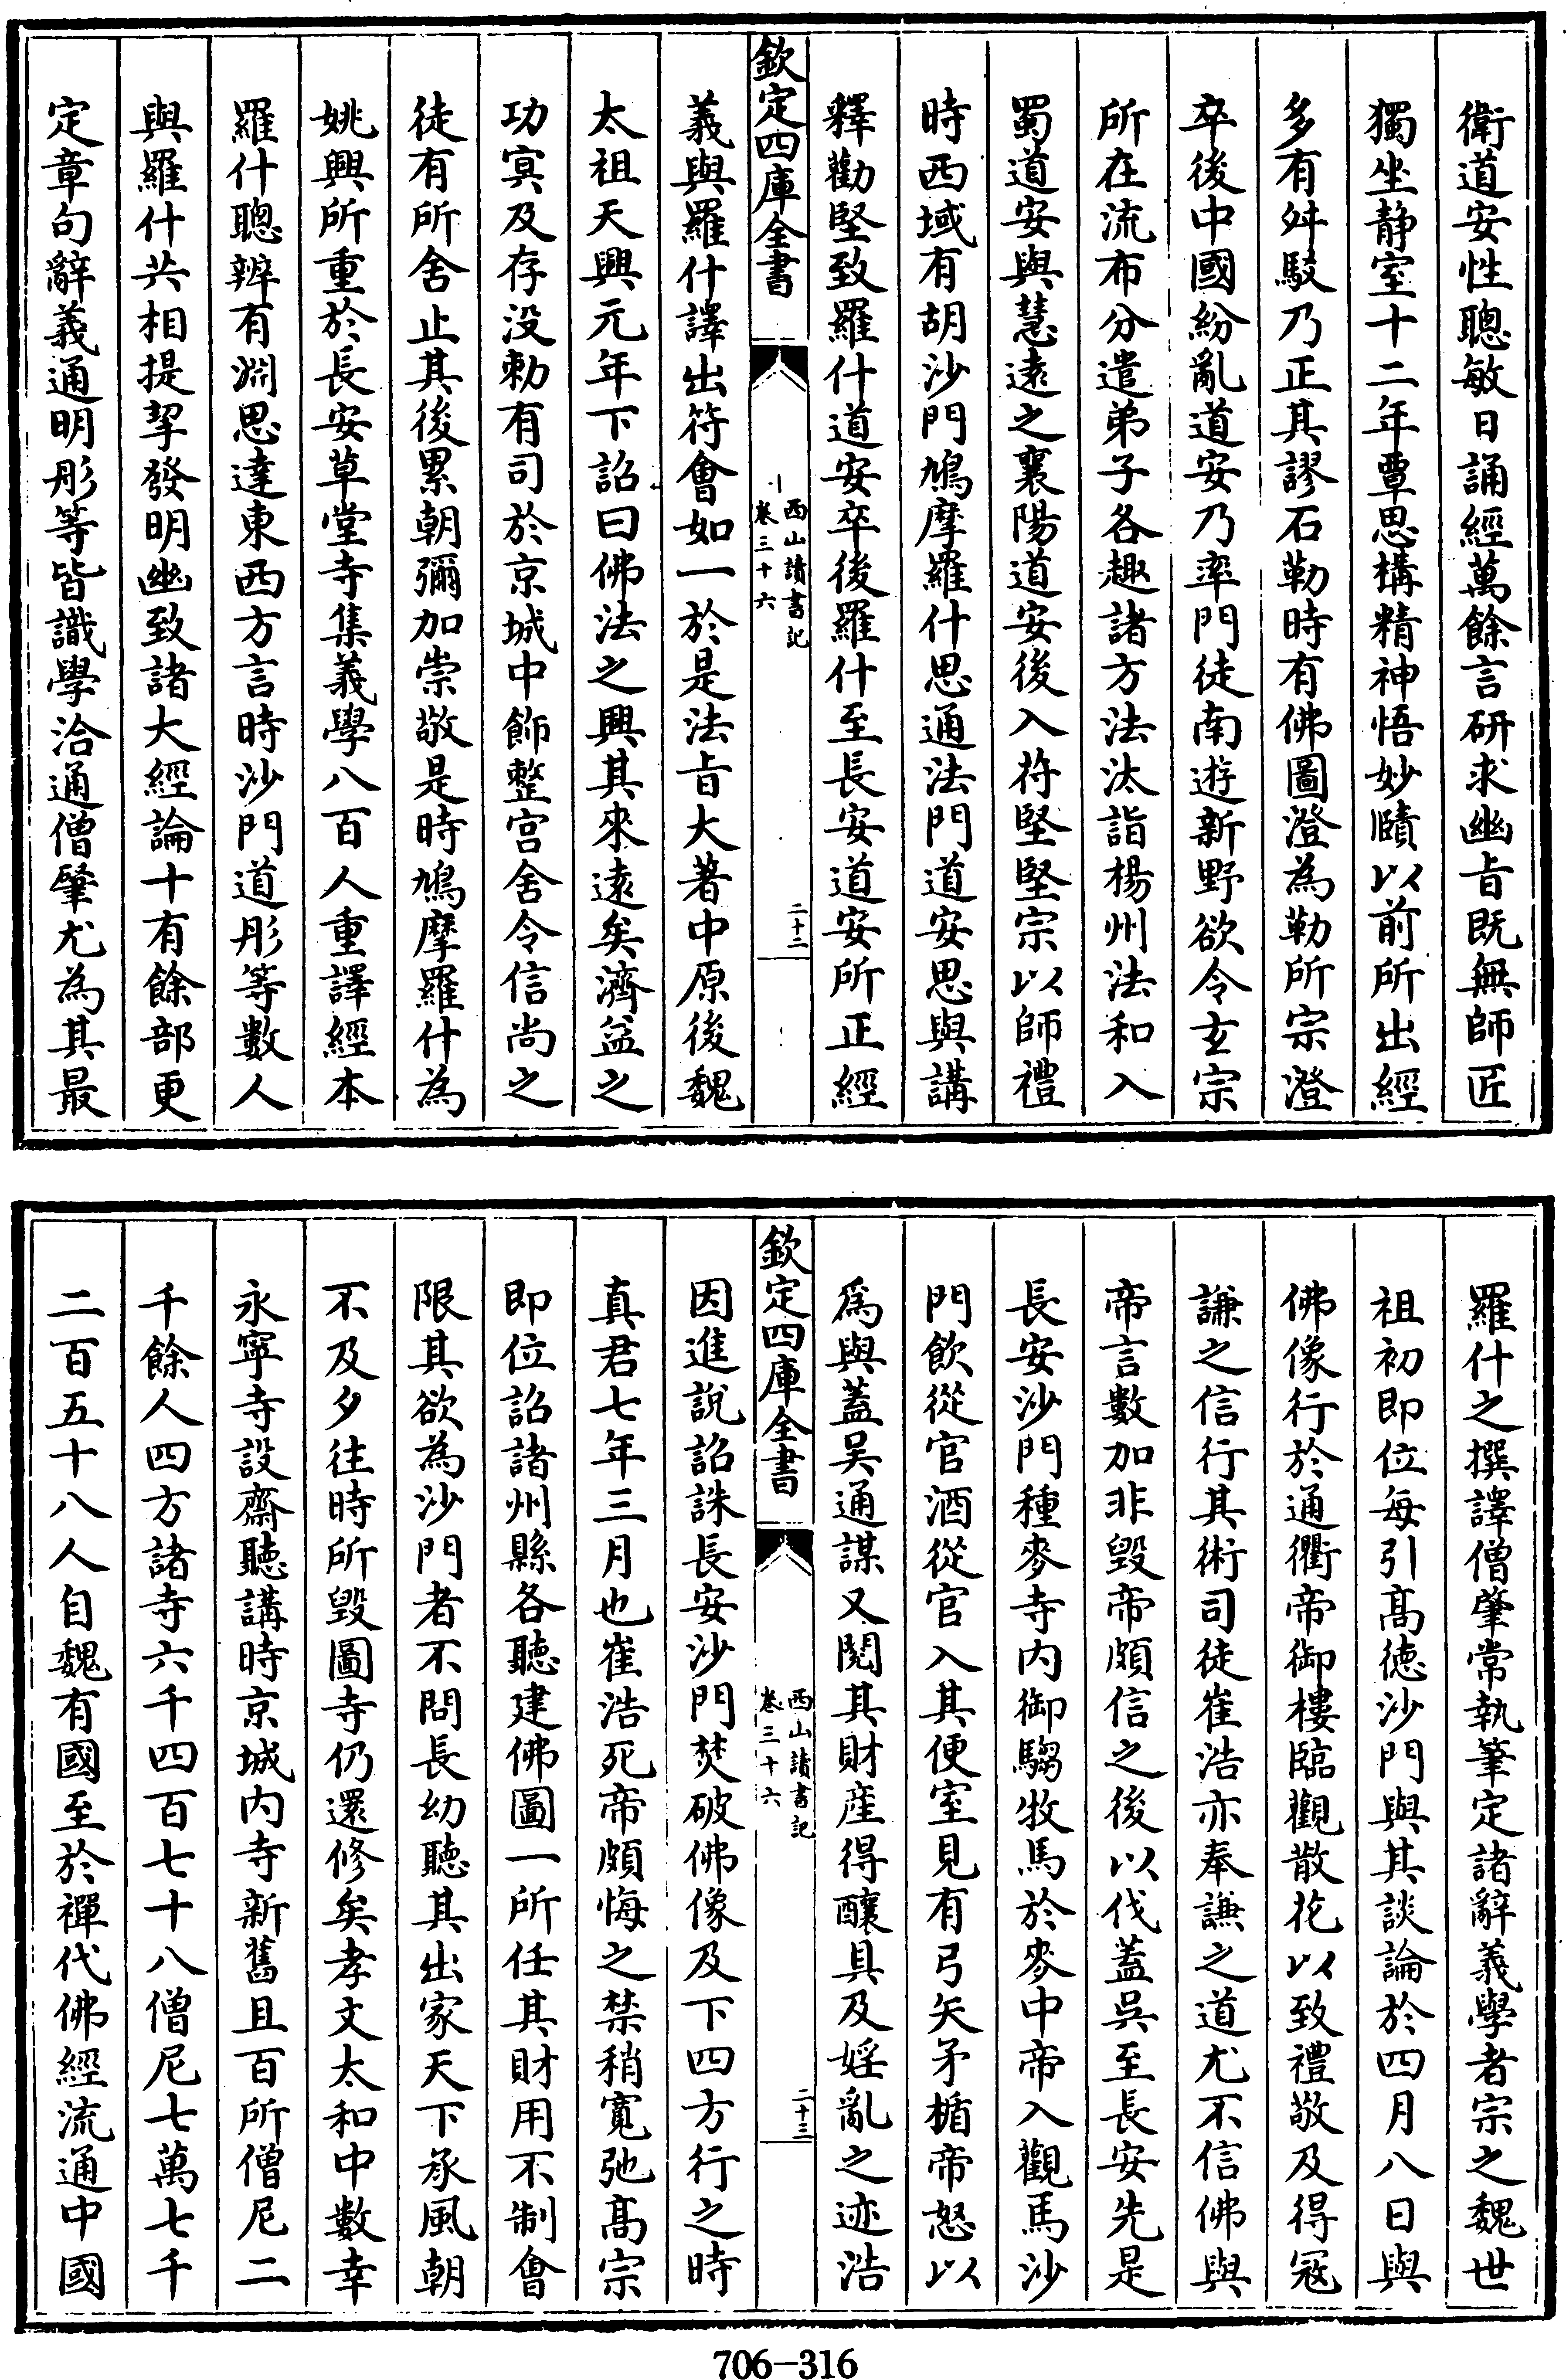 衛道安性聰敏日誦經萬餘言研求幽㫖既無師匠
獨坐静室十二年覃思構精神悟妙賾以前所出經
多有舛駁乃正其謬石勒時有佛圖澄為勒所宗澄
卒後中國紛亂道安乃率門徒南遊新野欲令𤣥宗
所在流布分遣弟子各趣諸方法汰詣楊州法和入
蜀道安與慧遠之襄陽道安後入苻堅堅宗以師禮
時西域有胡沙門鳩摩羅什思通法門道安思與講
釋勸堅致羅什道安卒後羅什至長安道安所正經
欽定四庫全書
西山讀書記
卷三十六
二十二
義與羅什譯出符會如一於是法㫖大著中原後魏
太祖天興元年下詔曰佛法之興其來逺矣濟益之
功冥及存没勅有司於京城中飾整宫舍令信尚之
徒有所舍止其後累朝彌加崇敬是時鳩摩羅什為
姚興所重於長安草堂寺集義學八百人重譯經本
羅什聰辨有淵思達東西方言時沙門道彤等數人
與羅什共相提挈發明幽致諸大經論十有餘部更
定章句辭義通明彤等皆識學洽通僧肇尤為其最
羅什之撰譯僧肇常執筆定諸辭義學者宗之魏世
祖初即位每引髙徳沙門與其談論於四月八日與
佛像行於通衢帝御樓臨觀散花以致禮敬及得冦
謙之信行其術司徒崔浩亦奉謙之道尤不信佛與
帝言數加非毁帝頗信之後以伐蓋吳至長安先是
長安沙門種麥寺内御騶牧馬於麥中帝入觀馬沙
門飲從官酒從官入其便室見有弓矢矛楯帝怒以
爲與蓋吳通謀又閱其財産得釀具及婬亂之迹浩
欽定四庫全書
西山讀書記
卷三十六
二十三
因進說詔誅長安沙門焚破佛像及下四方行之時
真君七年三月也崔浩死帝頗悔之禁稍寛弛髙宗
即位詔諸州縣各聽建佛圖一所任其財用不制會
限其欲為沙門者不問長幼聽其出家天下承風朝
不及夕往時所毁圖寺仍還修矣孝文太和中數幸
永寧寺設齋聽講時京城内寺新舊且百所僧尼二
千餘人四方諸寺六千四百七十八僧尼七萬七千
二百五十八人自魏有國至於禪代佛經流通中國
706-316